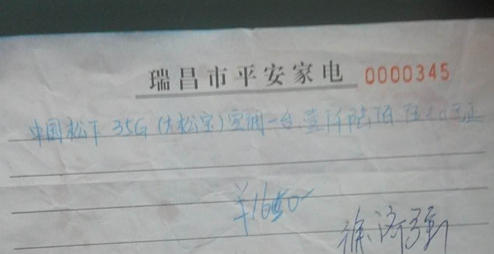 瑞昌市平安家电 0000345
中国松下 35G(大松宝)空调一台 壹仟陆佰伍
¥1650
徐济强